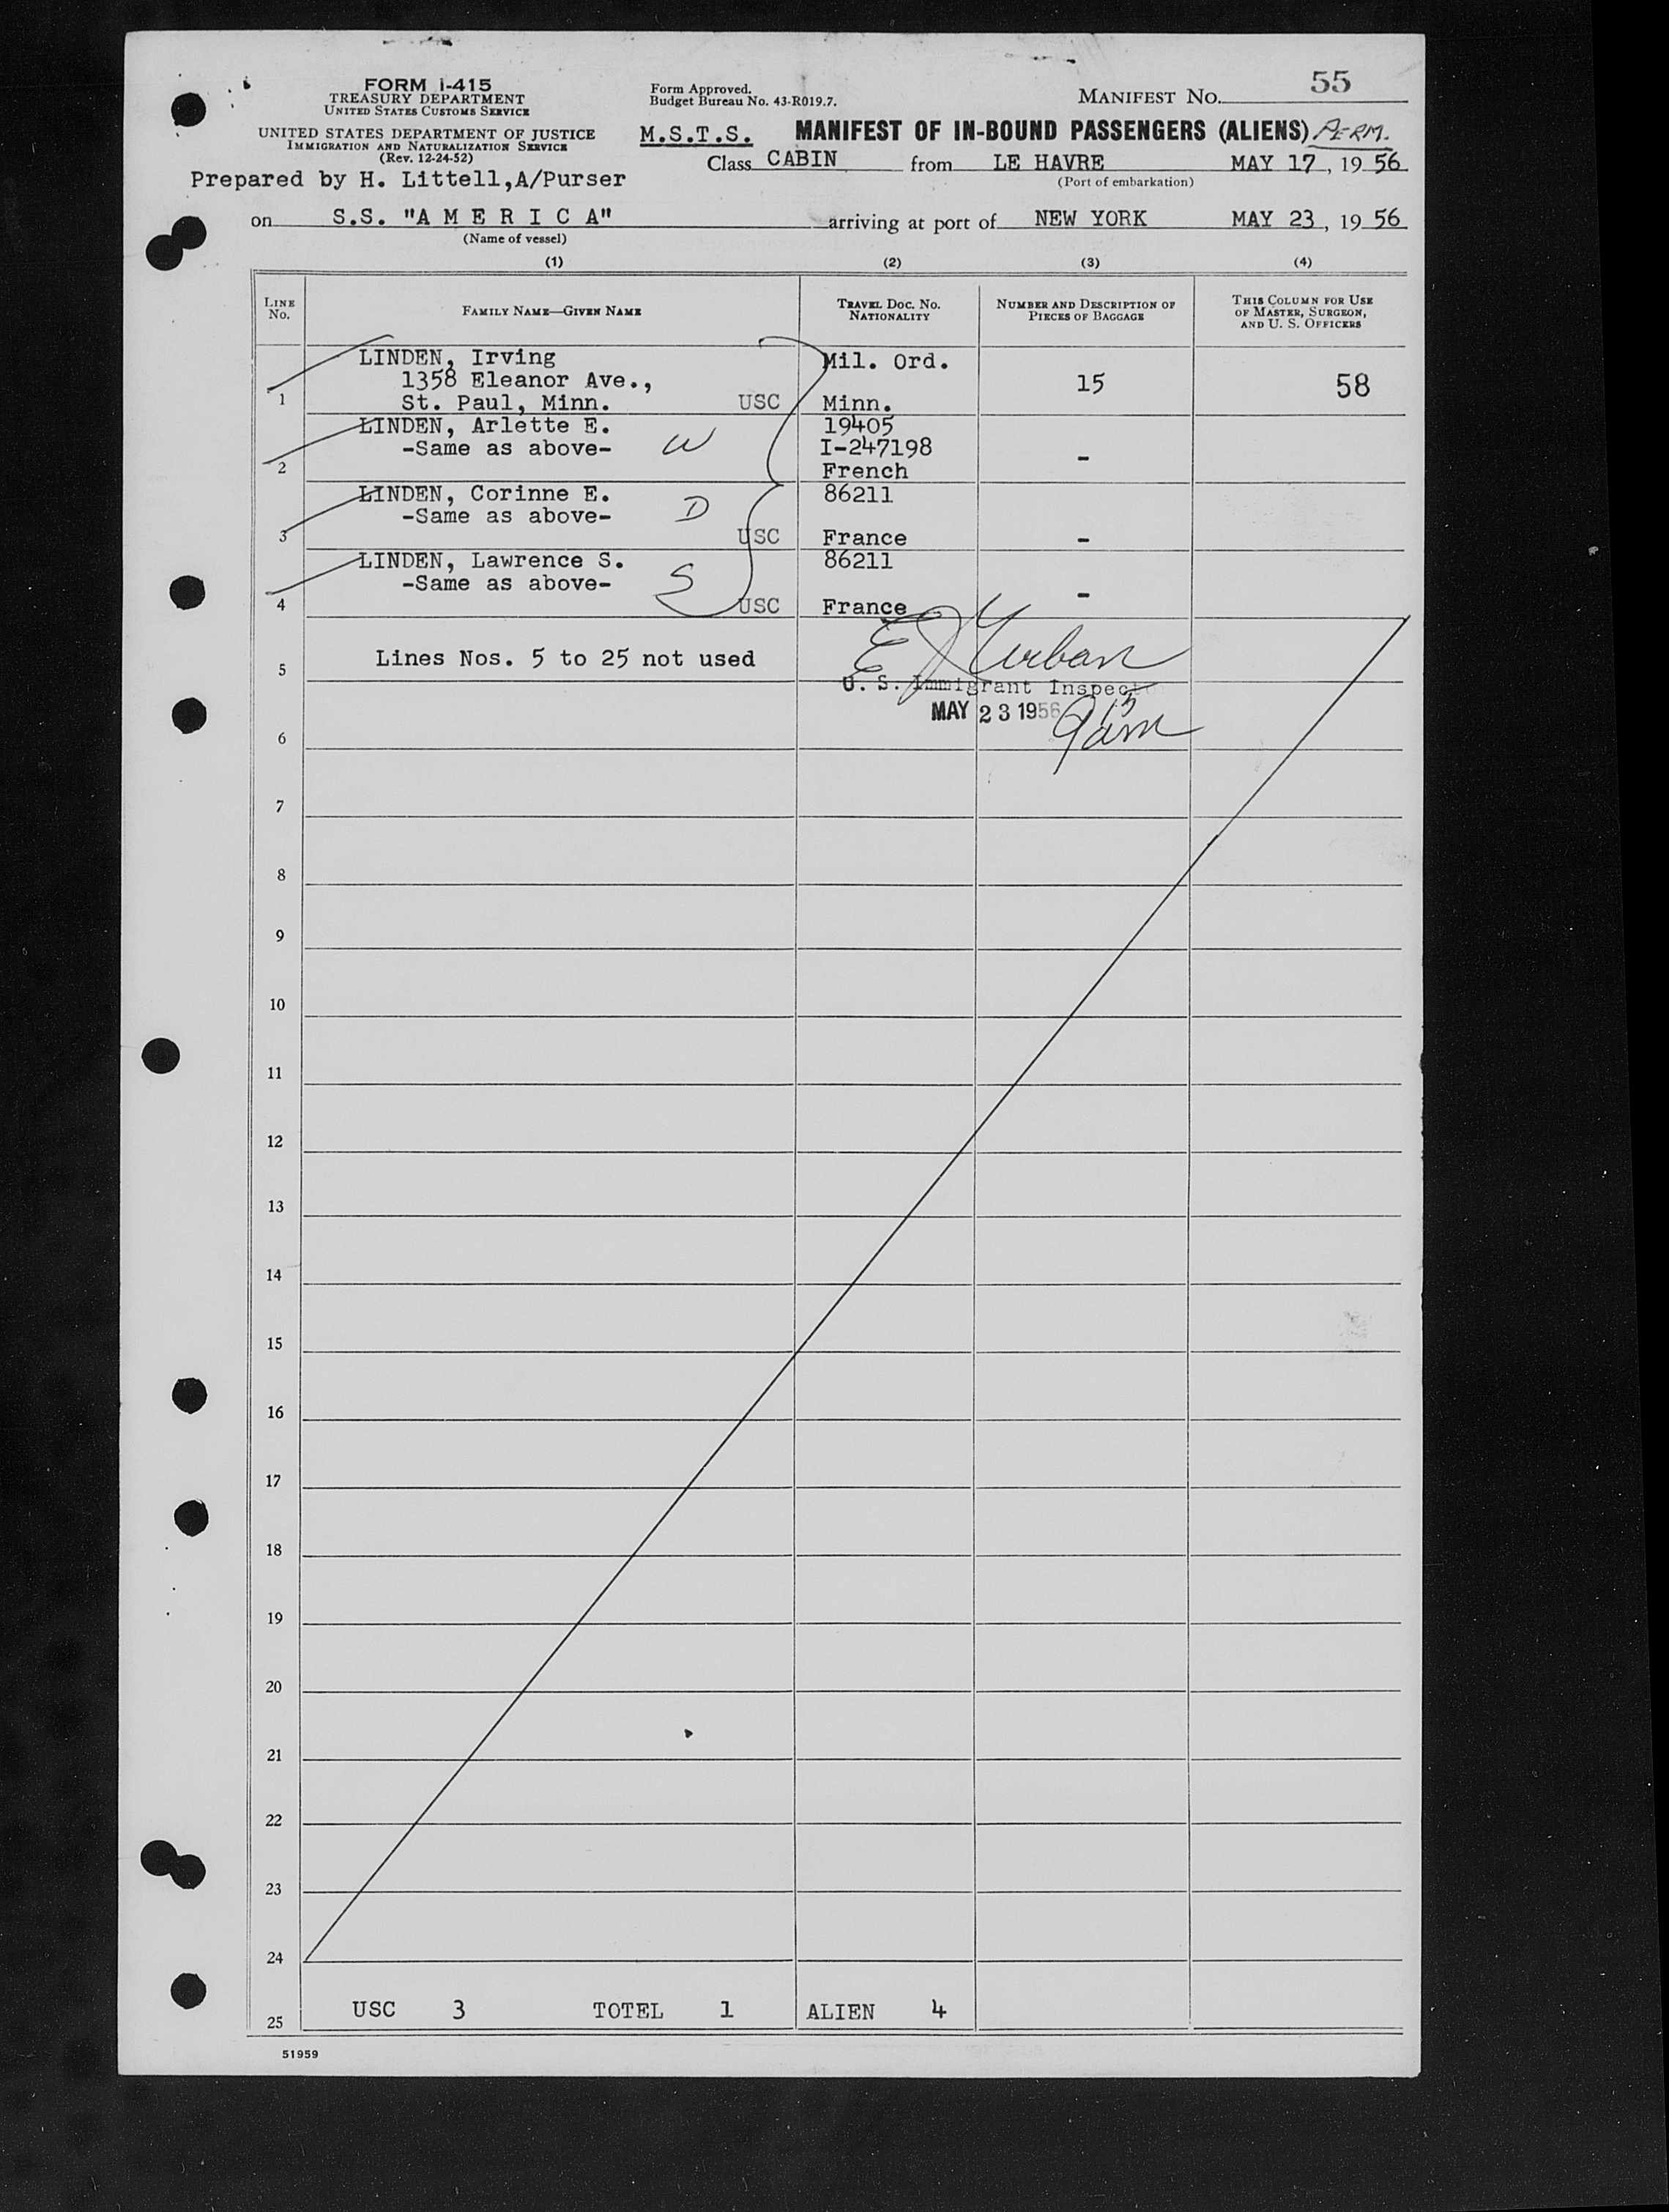 FORM I-415
TREASURY DEPARTMENT
UNITED STATES CUSTOMS SERVICE
UNITED STATES DEPARTMENT OF JUSTICE
IMMIGRATION AND NATURALIZATION SERVICE
(Rev. 12-24-52)
Prepared by H. Littell,A/Purser
Form Approved.
Budget Bureau No. 43-R019.7.
MANIFEST NO. 55
M.S.T.S. MANIFEST OF IN-BOUND PASSENGERS (ALIENS) PERM.
Class CABIN from LE HAVRE MAY 17, 19 56
(Port of embarkation)
on S.S. "A M E R I C A" arriving at port of NEW YORK MAY 23, 19 56
(Name of vessel)
(1) (2) (3) (4)
LINE NO. FAMILY NAME—GIVEN NAME TRAVEL DOC. NO. NATIONALITY NUMBER AND DESCRIPTION OF PIECES OF BAGGAGE THIS COLUMN FOR USE OF MASTER, SURGEON, AND U. S. OFFICERS
LINDEN, Irving Mil. Ord.
1358 Eleanor Ave., 15 58
1 St. Paul, Minn. USC Minn.
LINDEN, Arlette E. 19405
-Same as above- W I-247198
2 French -
LINDEN, Corinne E. 86211
-Same as above- D
3 USC France -
LINDEN, Lawrence S. 86211
-Same as above- S
4 USC France -
5 Lines Nos. 5 to 25 not used
U. S. Immigrant Inspector
MAY 23 1956
6
7
8
9
10
11
12
13
14
15
16
17
18
19
20
21
22
23
24
25 USC 3 TOTEL 1 ALIEN 4
51959